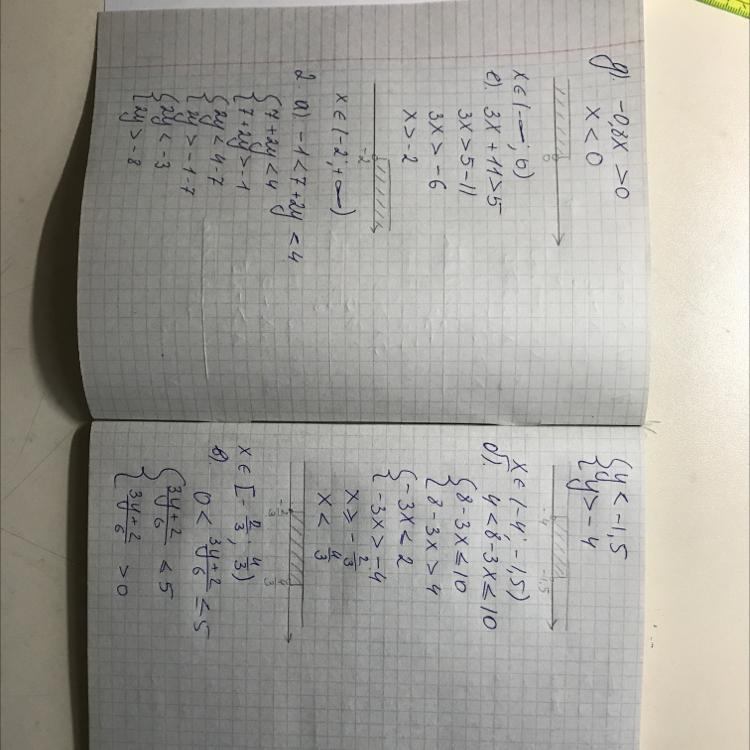 д). -0,8x > 0
x < 0
0
x ∈ (-∞; 0)
е). 3x + 11 > 5
3x > 5 - 11
3x > -6
x > -2
-2
x ∈ (-2; +∞)
2. а) -1 < 7 + 2y < 4
{ 7 + 2y < 4
{ 7 + 2y > -1
{ 2y < 4 - 7
{ 2y > -1 - 7
{ 2y < -3
{ 2y > -8
{ y < -1,5
{ y > -4
-4 -1,5
x ∈ (-4; -1,5)
б). 4 < 8 - 3x ≤ 10
{ 8 - 3x ≤ 10
{ 8 - 3x > 4
{ -3x ≤ 2
{ -3x > -4
x ≥ -2/3
x < 4/3
-2/3 4/3
x ∈ [-2/3; 4/3)
в). 0 < (3y + 2)/6 ≤ 5
{ (3y + 2)/6 ≤ 5
{ (3y + 2)/6 > 0